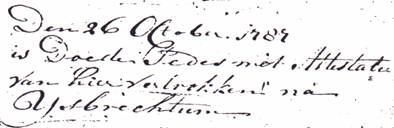 Den 26 October 1787
is Doede Fedes met Attestatie
van hier vertrokken na
Ysbrechtum